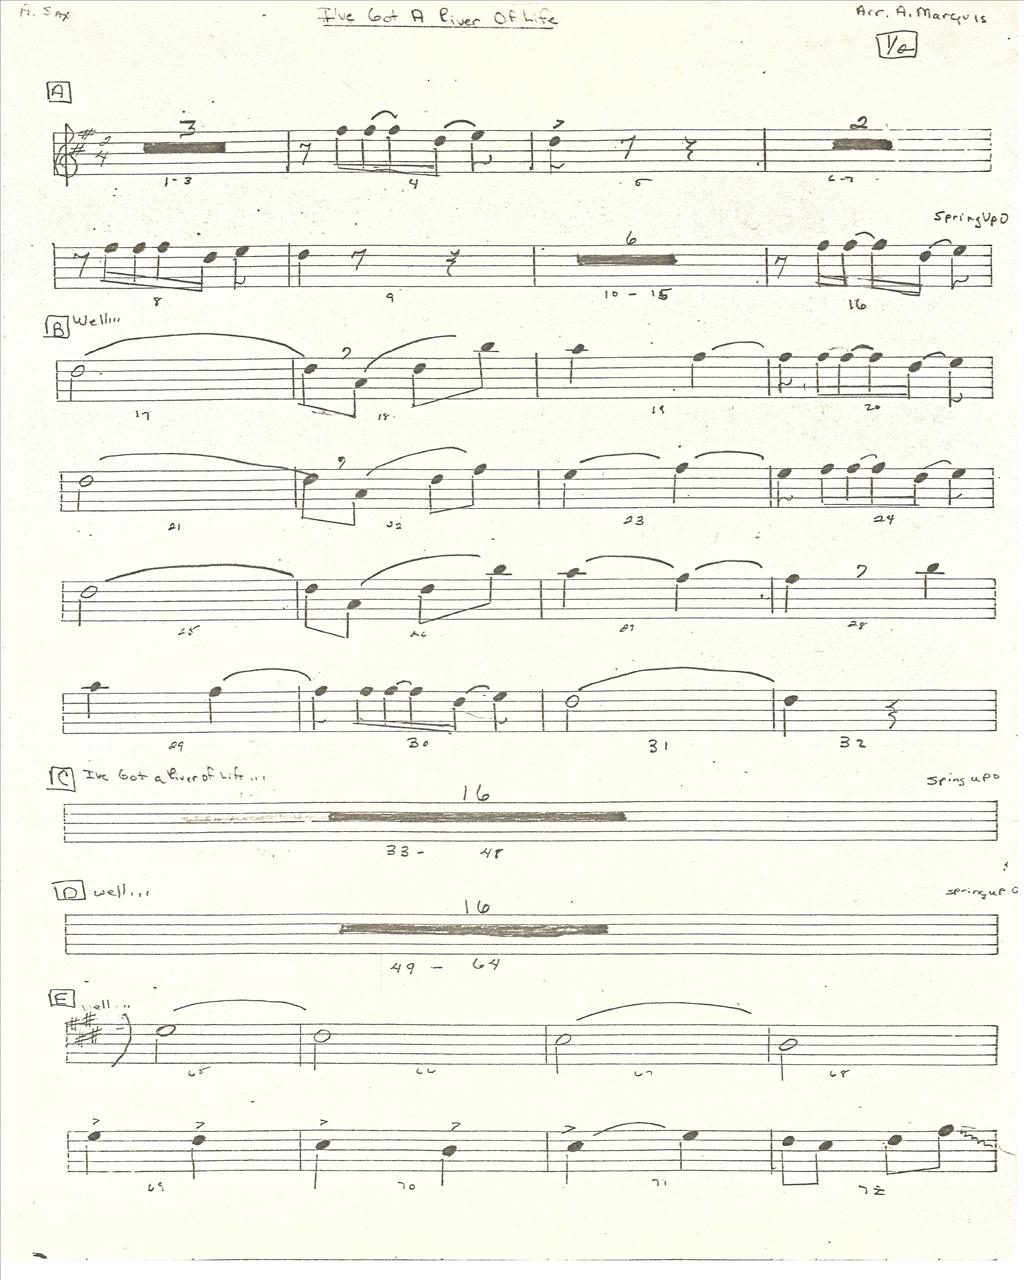 A. Sax I've Got A River Of Life Arr. A. Marquis
A
3 2
2
4
1-3 4 5 6-7
Spring Up O
6
8 9 10 - 15 16
B Well...
17 18 19 20
21 22 23 24
25 26 27 28
29 30 31 32
C I've Got a River of Life... Sping up O
16
33 - 48
D well... spring up O
16
49 - 64
E well...
65 66 67 68
69 70 71 72